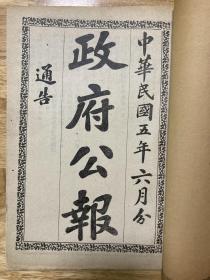 中華民國五年六月分
政府公報
通告